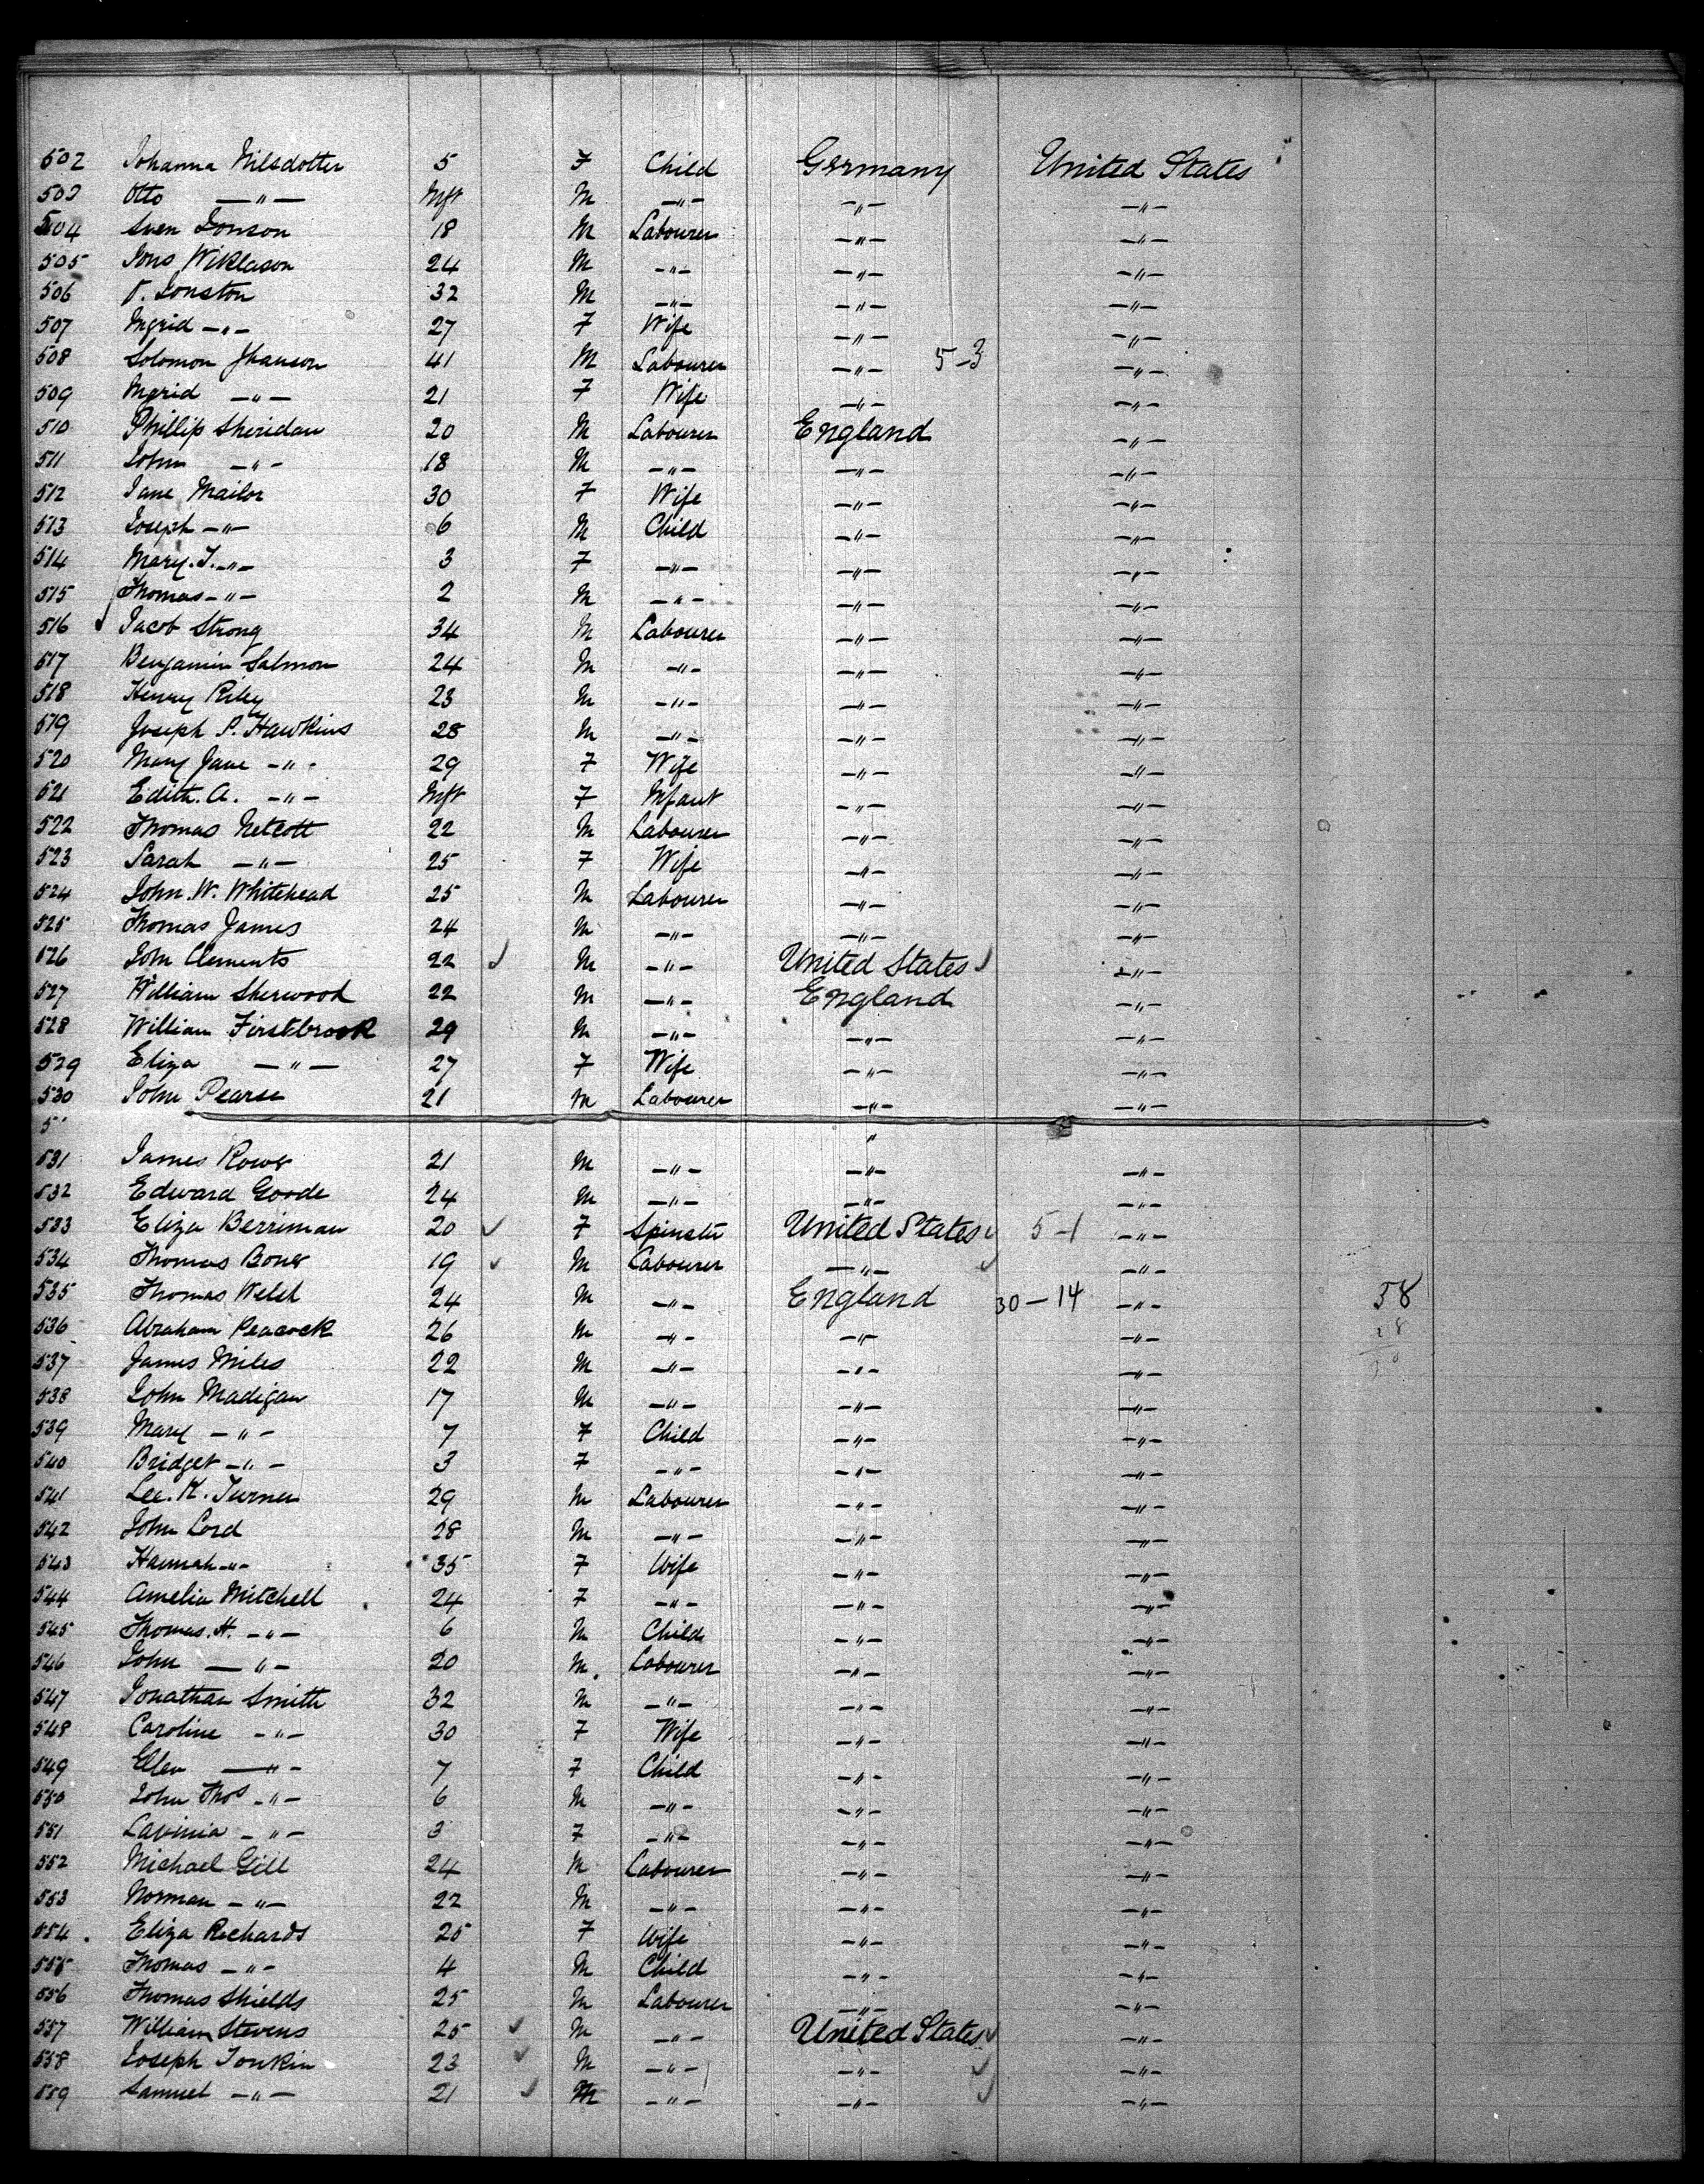 502 Johanna Nilsdotter 5 F Child Germany United States
503 Otto —"— Inft M —"— —"— —"—
504 Sven Jonson 18 M Labourer —"— —"—
505 Jons Wiklason 24 M —"— —"— —"—
506 P. Jonston 32 M —"— —"— —"—
507 Ingrid —"— 27 F Wife —"— —"—
508 Solomon Jhanson 41 M Labourer —"— 5-3 —"—
509 Ingrid —"— 21 F Wife —"— —"—
510 Phillip Sheridan 20 M Labourer England —"—
511 John —"— 18 M —"— —"— —"—
512 Jane Mailor 30 F Wife —"— —"—
513 Joseph —"— 6 M Child —"— —"—
514 Mary. J. —"— 3 F —"— —"— —"—
515 Thomas —"— 2 M —"— —"— —"—
516 Jacob Strong 34 M Labourer —"— —"—
517 Benjamin Salmon 24 M —"— —"— —"—
518 Henry Riley 23 M —"— —"— —"—
519 Joseph P. Hawkins 28 M —"— —"— —"—
520 Mary Jane —"— 29 F Wife —"— —"—
521 Edith. A. —"— Inft F Infant —"— —"—
522 Thomas Netcott 22 M Labourer —"— —"—
523 Sarah —"— 25 F Wife —"— —"—
524 John. W. Whitehead 25 M Labourer —"— —"—
525 Thomas James 24 M —"— —"— —"—
526 John Clements 22 M —"— United States —"—
527 William Sherwood 22 M —"— England —"—
528 William Firstbrook 29 M —"— —"— —"—
529 Eliza —"— 27 F Wife —"— —"—
530 John Pearse 21 M Labourer —"— —"—
5 "
531 James Rowe 21 M —"— —"— —"—
532 Edward Goode 24 M —"— —"— —"—
533 Eliza Berriman 20 F Spinster United States 5-1 —"—
534 Thomas Bone 19 M Labourer —"— —"—
535 Thomas Welsh 24 M —"— England 30-14 —"— 58
536 Abraham Peacock 26 M —"— —"— —"—
537 James Miles 22 M —"— —"— —"—
538 John Madigan 17 M —"— —"— —"—
539 Mary —"— 7 F Child —"— —"—
540 Bridget —"— 3 F —"— —"— —"—
541 Lee. K. Turner 29 M Labourer —"— —"—
542 John Lord 28 M —"— —"— —"—
543 Hannah —"— 35 F Wife —"— —"—
544 Amelia Mitchell 24 F —"— —"— —"—
545 Thomas. H. —"— 6 M Child —"— —"—
546 John —"— 20 M. Labourer —"— —"—
547 Jonathan Smith 32 M —"— —"— —"—
548 Caroline —"— 30 F Wife —"— —"—
549 Ellen —"— 7 F Child —"— —"—
550 John Thos —"— 6 M —"— —"— —"—
551 Lavinia —"— 3 F —"— —"— —"—
552 Michael Gill 24 M Labourer —"— —"—
553 Norman —"— 22 M —"— —"— —"—
554 Eliza Richards 25 F Wife —"— —"—
555 Thomas —"— 4 M Child —"— —"—
556 Thomas Shields 25 M Labourer —"— —"—
557 William Stevens 25 M —"— United States —"—
558 Joseph Tonkin 23 M —"— —"— —"—
559 Samuel —"— 21 M —"— —"— —"—